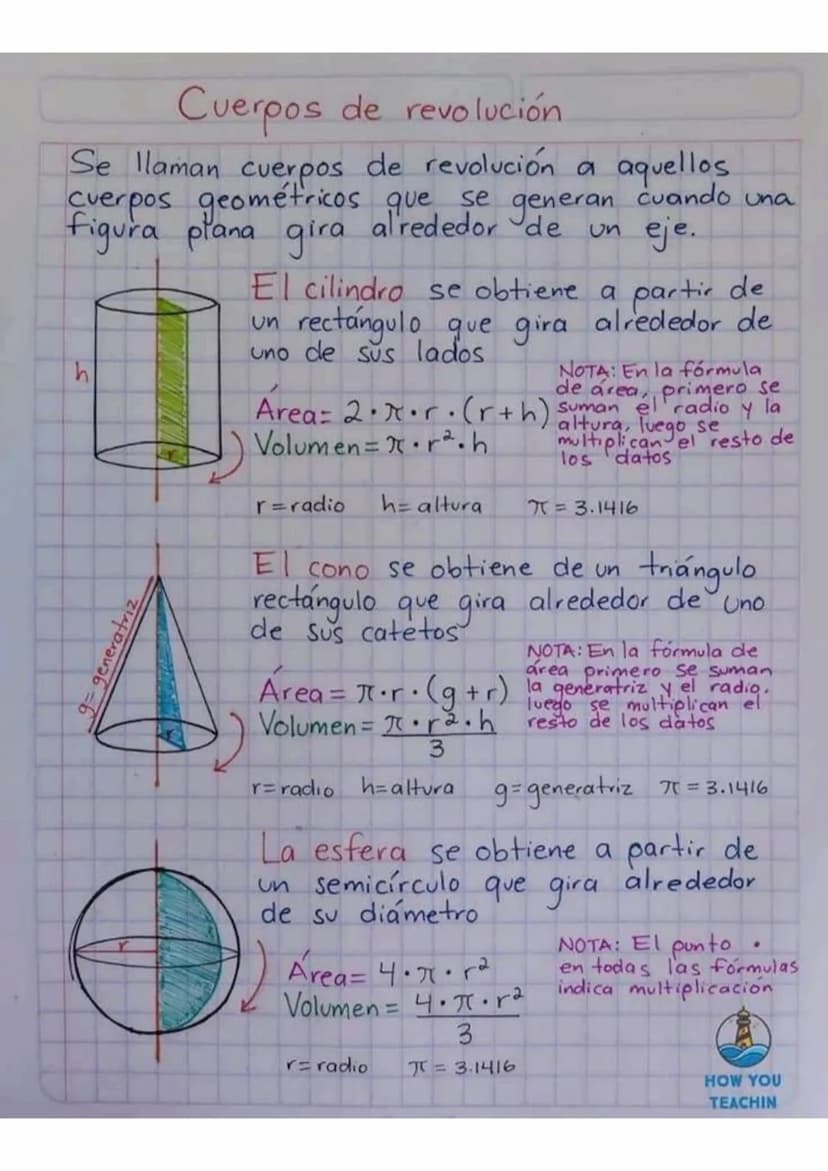 Cuerpos de revolución
Se llaman cuerpos de revolución a aquellos
cuerpos geométricos que se generan cuando una
figura plana gira alrededor de un eje.
El cilindro se obtiene a partir de
un rectángulo que gira alrededor de
uno de sus lados
h
r
Área= 2·π·r·(r+h)
Volumen= π·r²·h
NOTA: En la fórmula
de área, primero se
suman el radio y la
altura, luego se
multiplican el resto de
los datos
r=radio h=altura π=3.1416
El cono se obtiene de un triángulo
rectángulo que gira alrededor de uno
de sus catetos
g=generatriz
r
Área= π·r·(g+r)
Volumen= π·r²·h
3
NOTA: En la fórmula de
área primero se suman
la generatriz y el radio.
luego se multiplican el
resto de los datos
r=radio h=altura g=generatriz π=3.1416
La esfera se obtiene a partir de
un semicírculo que gira alrededor
de su diámetro
r
Área= 4·π·r²
Volumen= 4·π·r²
3
NOTA: El punto ·
en todas las fórmulas
indica multiplicación
r=radio π=3.1416
HOW YOU
TEACHIN